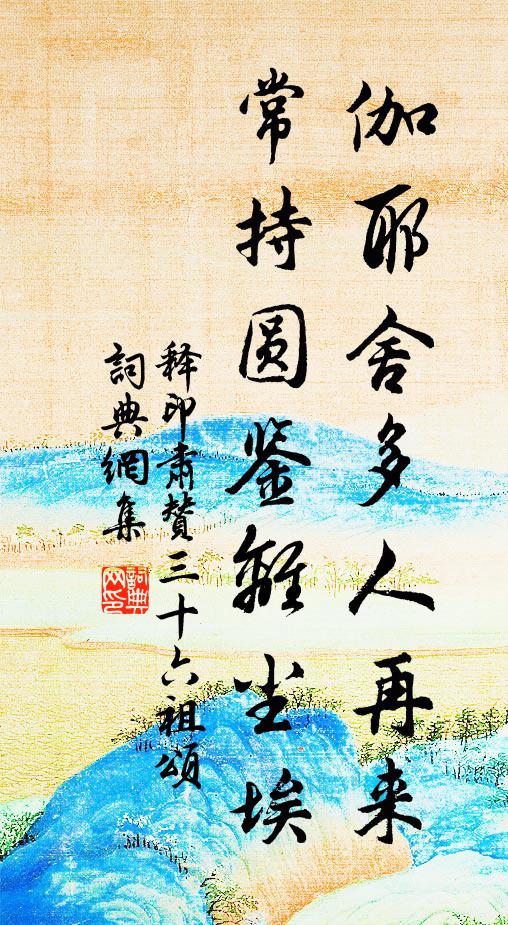 伽耶舍多人再来
常持圆鉴離尘埃
释印肃赞三十六祖頌
詞典網集
詞典网印